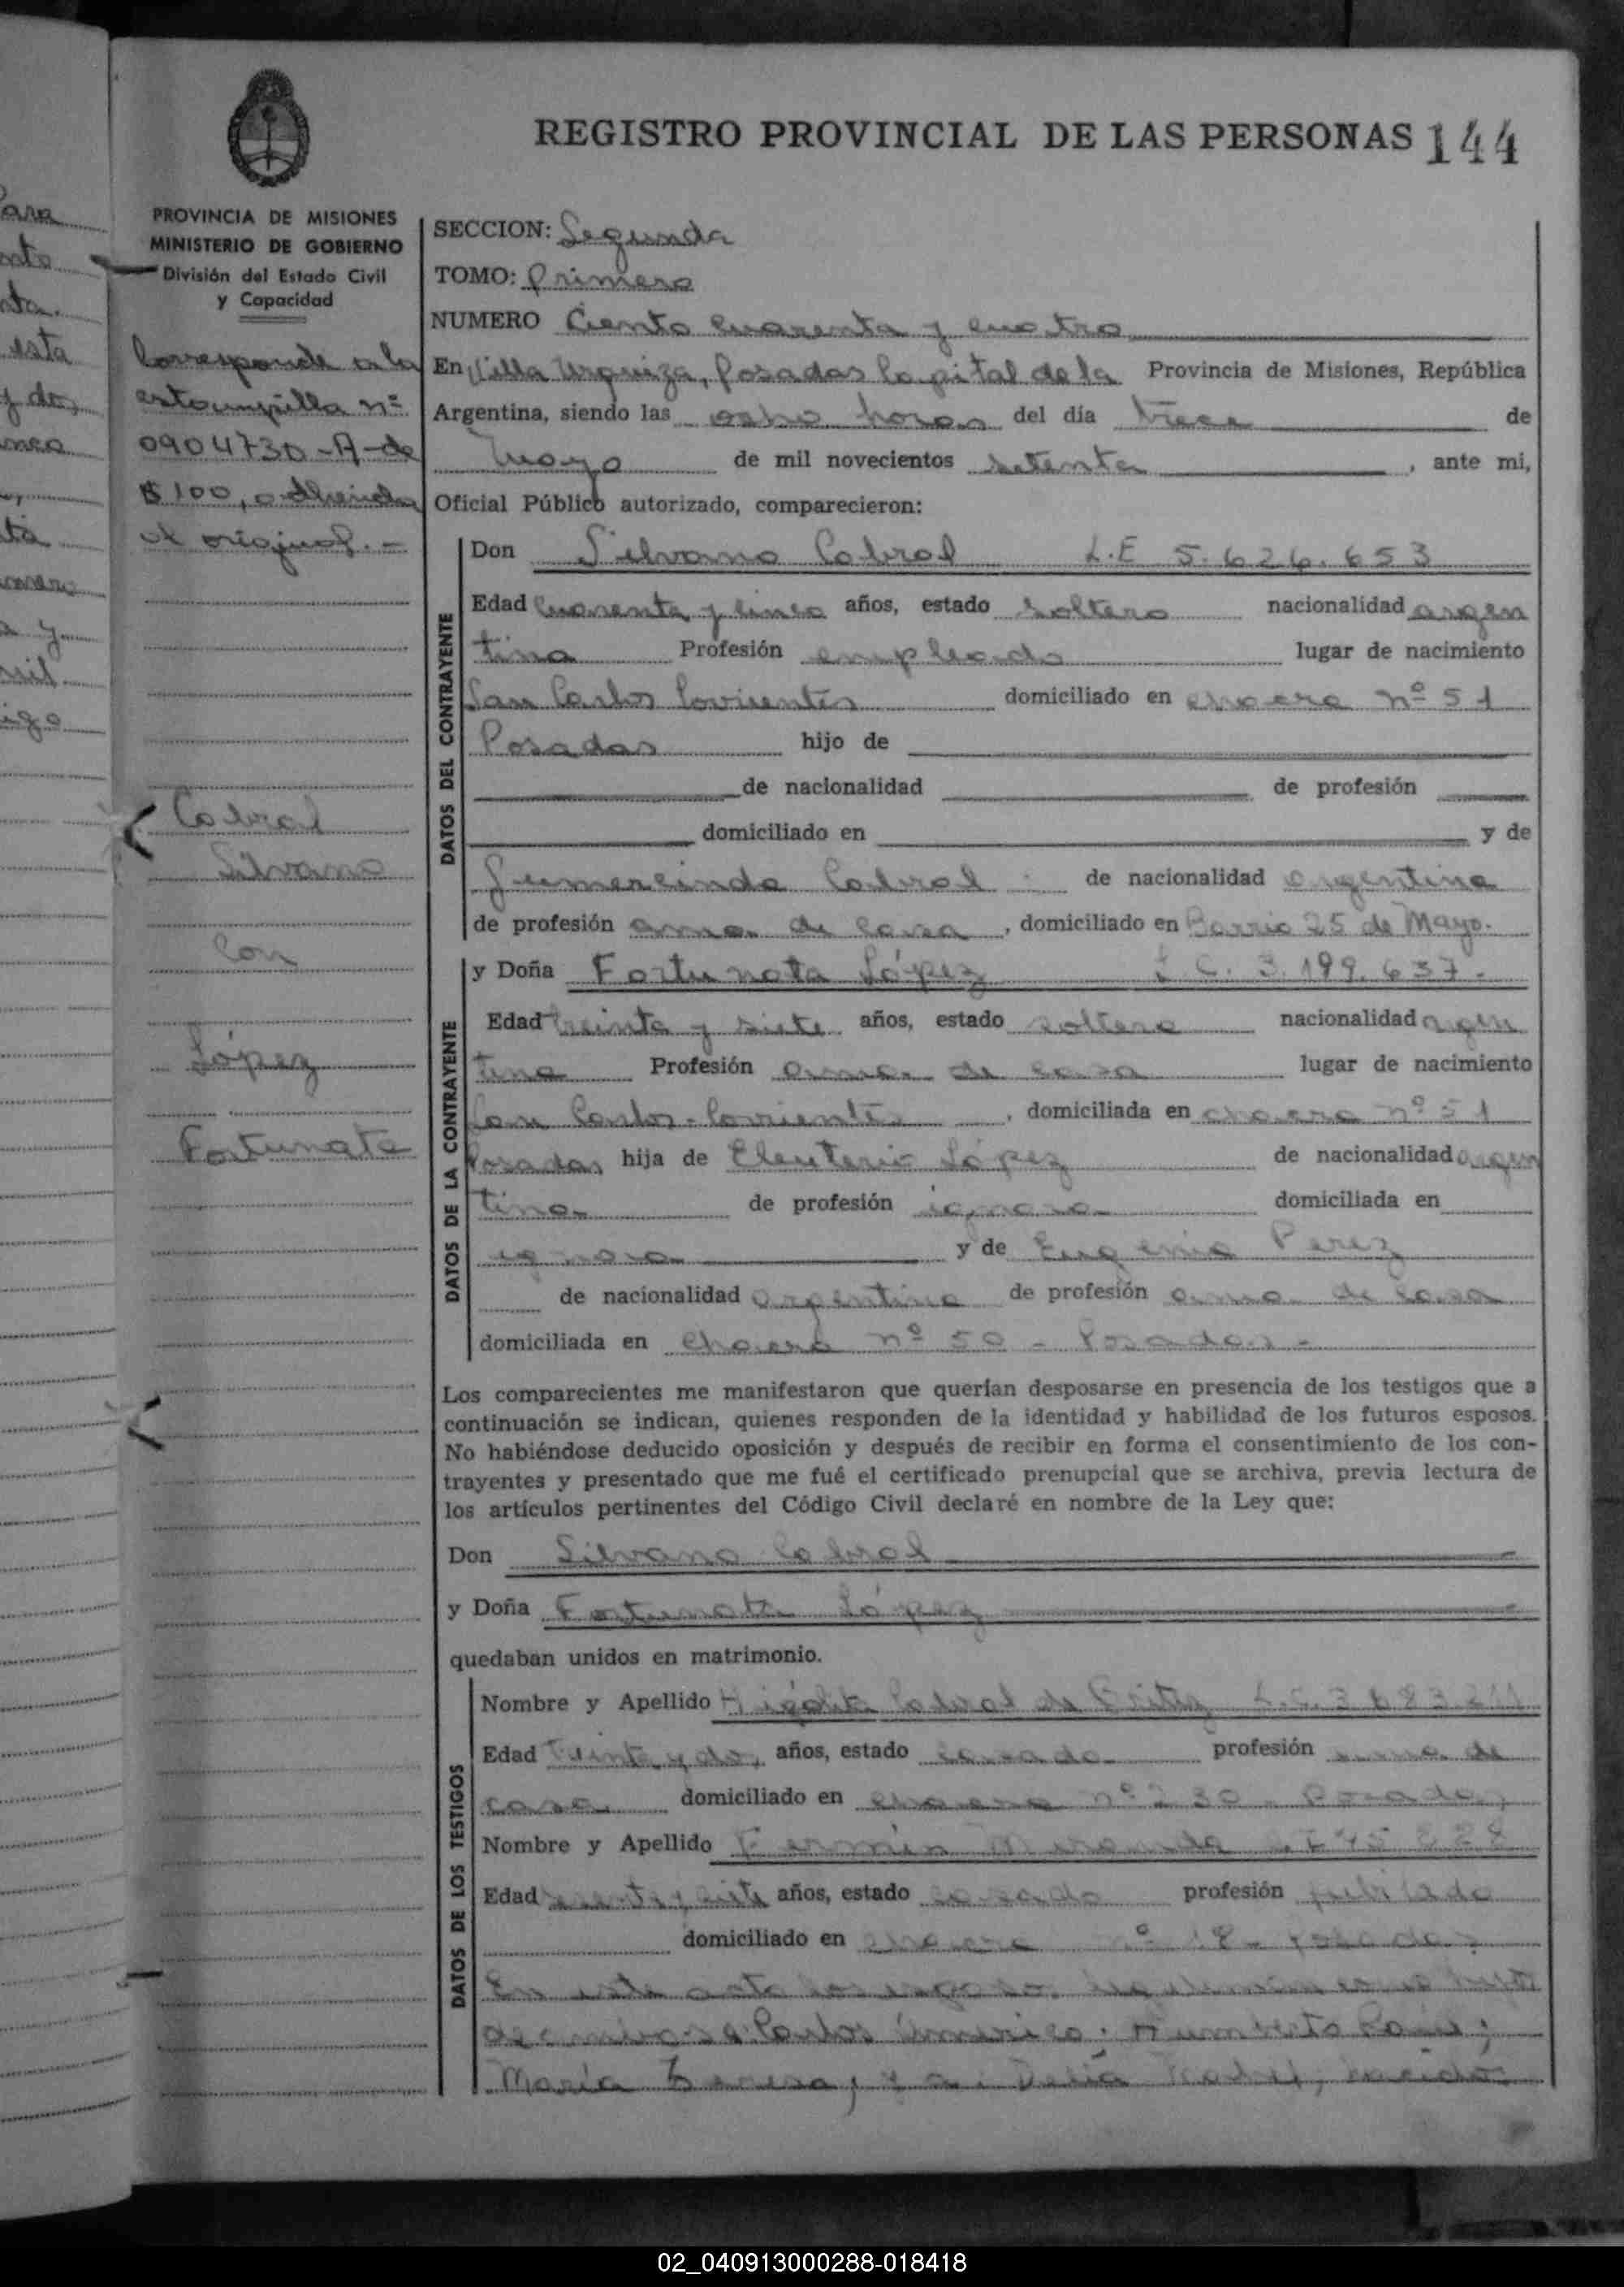 REGISTRO PROVINCIAL DE LAS PERSONAS 144
PROVINCIA DE MISIONES
MINISTERIO DE GOBIERNO
División del Estado Civil
y Capacidad
Corresponde a la
estampilla nº
0904730-A-de
$ 100, adherida
al original.-
Cabral
Silvano
Con
López
Fortunata
SECCION: Segunda
TOMO: Primero
NUMERO Ciento cuarenta y cuatro
En Villa Urquiza, Posadas Capital de la Provincia de Misiones, República
Argentina, siendo las ocho horas del día trece de
Mayo de mil novecientos setenta, ante mi,
Oficial Público autorizado, comparecieron:
DATOS DEL CONTRAYENTE
Don Silvano Cabral L.E 5.626.653
Edad Cuarenta y cinco años, estado soltero nacionalidad argen
tina Profesión empleado lugar de nacimiento
San Carlos Corrientes domiciliado en chacra nº 51
Posadas hijo de
de nacionalidad de profesión
domiciliado en y de
Gumercinda Cabral de nacionalidad argentina
de profesión ama de casa, domiciliado en Barrio 25 de Mayo.
DATOS DE LA CONTRAYENTE
y Doña Fortunata López L C. 3.199.637.-
Edad treinta y siete años, estado soltera nacionalidad argen
tina Profesión ama de casa lugar de nacimiento
San Carlos-Corrientes, domiciliada en chacra nº 51
Posadas, hija de Eleuterio López de nacionalidad argen
tina de profesión ignora domiciliada en
ignora y de Eugenia Perez
de nacionalidad argentina de profesión ama de casa
domiciliada en chacra nº 50 - Posadas -
Los comparecientes me manifestaron que querían desposarse en presencia de los testigos que a
continuación se indican, quienes responden de la identidad y habilidad de los futuros esposos.
No habiéndose deducido oposición y después de recibir en forma el consentimiento de los con-
trayentes y presentado que me fué el certificado prenupcial que se archiva, previa lectura de
los artículos pertinentes del Código Civil declaré en nombre de la Ley que:
Don Silvano Cabral
y Doña Fortunata López
quedaban unidos en matrimonio.
DATOS DE LOS TESTIGOS
Nombre y Apellido Cabral de
Edad Treinta y dos, años, estado casada profesión ama de
casa domiciliado en chacra nº 230 - Posadas
Nombre y Apellido Fermín Miranda
Edad sesenta y siete años, estado casado profesión jubilado
domiciliado en chacra nº 18 - Posadas
En este acto los esposos
Carlos Américo; Humberto
María Teresa; y a: Delia nacidos
02_040913000288-018418